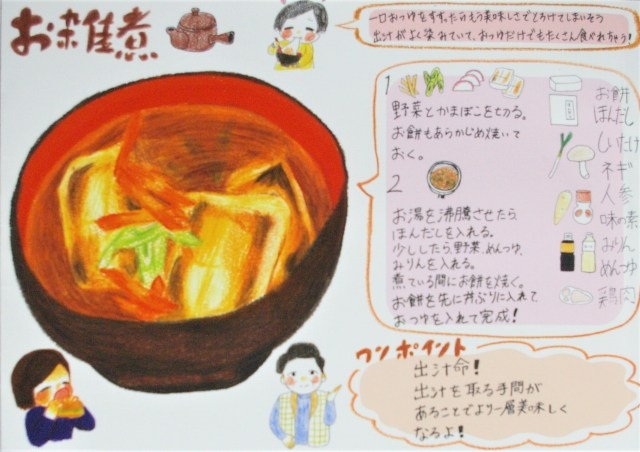 お雑煮
一口おつゆをすすったらもう美味しさでとろけてしまいそう
出汁がよく染みていて、おつゆだけでもたくさん食べれちゃう!
1
野菜とかまぼこを切る。
お餅もあらかじめ焼いて
おく。
2
お湯を沸騰させたら
ほんだしを入れる。
少ししたら野菜、めんつゆ、
みりんを入れる。
煮ている間にお餅を焼く。
お餅を先に丼ぶりに入れて
おつゆを入れて完成!
お餅
ほんだし
しいたけ
ネギ
人参
味の素
みりん
めんつゆ
鶏肉
ワンポイント
出汁命!
出汁を取る手間が
あることでより一層美味しく
なるよ!